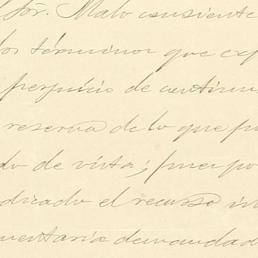 Sor. Malo consiente
los términos que exp
perjuicio de continu
reserva de lo que pu
do de vista; pues po
dicado el recurso in
mentaria demandada